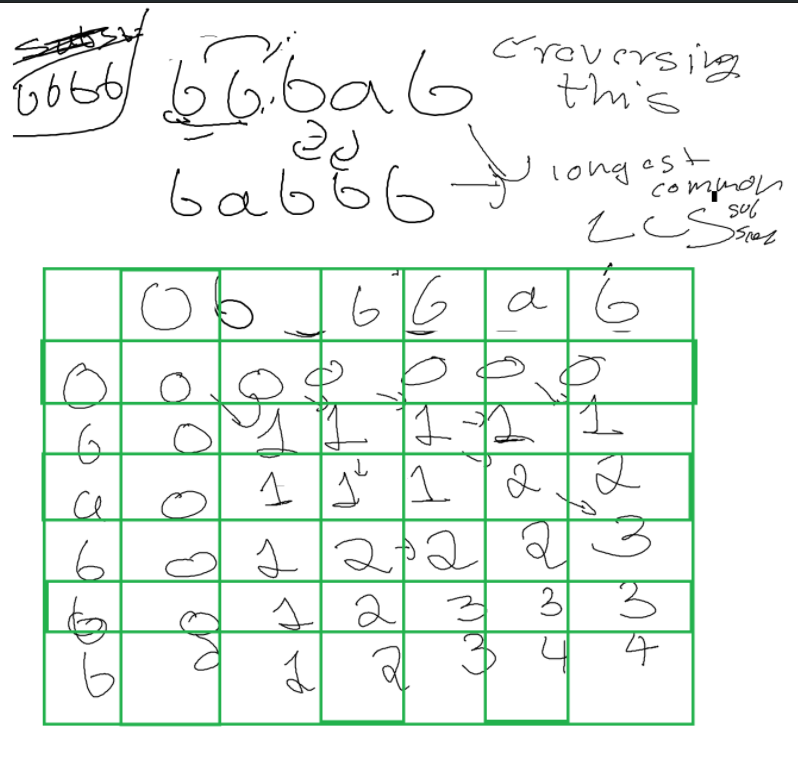 bbbb
bbbab
reversing
this
babbb
longest
common
LCS
sub
0 b b b a b
0 0 0 0 0 0 0
b 0 1 1 1 1 1
a 0 1 1 1 2 2
b 0 1 2 2 2 3
b 0 1 2 3 3 3
b 0 1 2 3 4 4